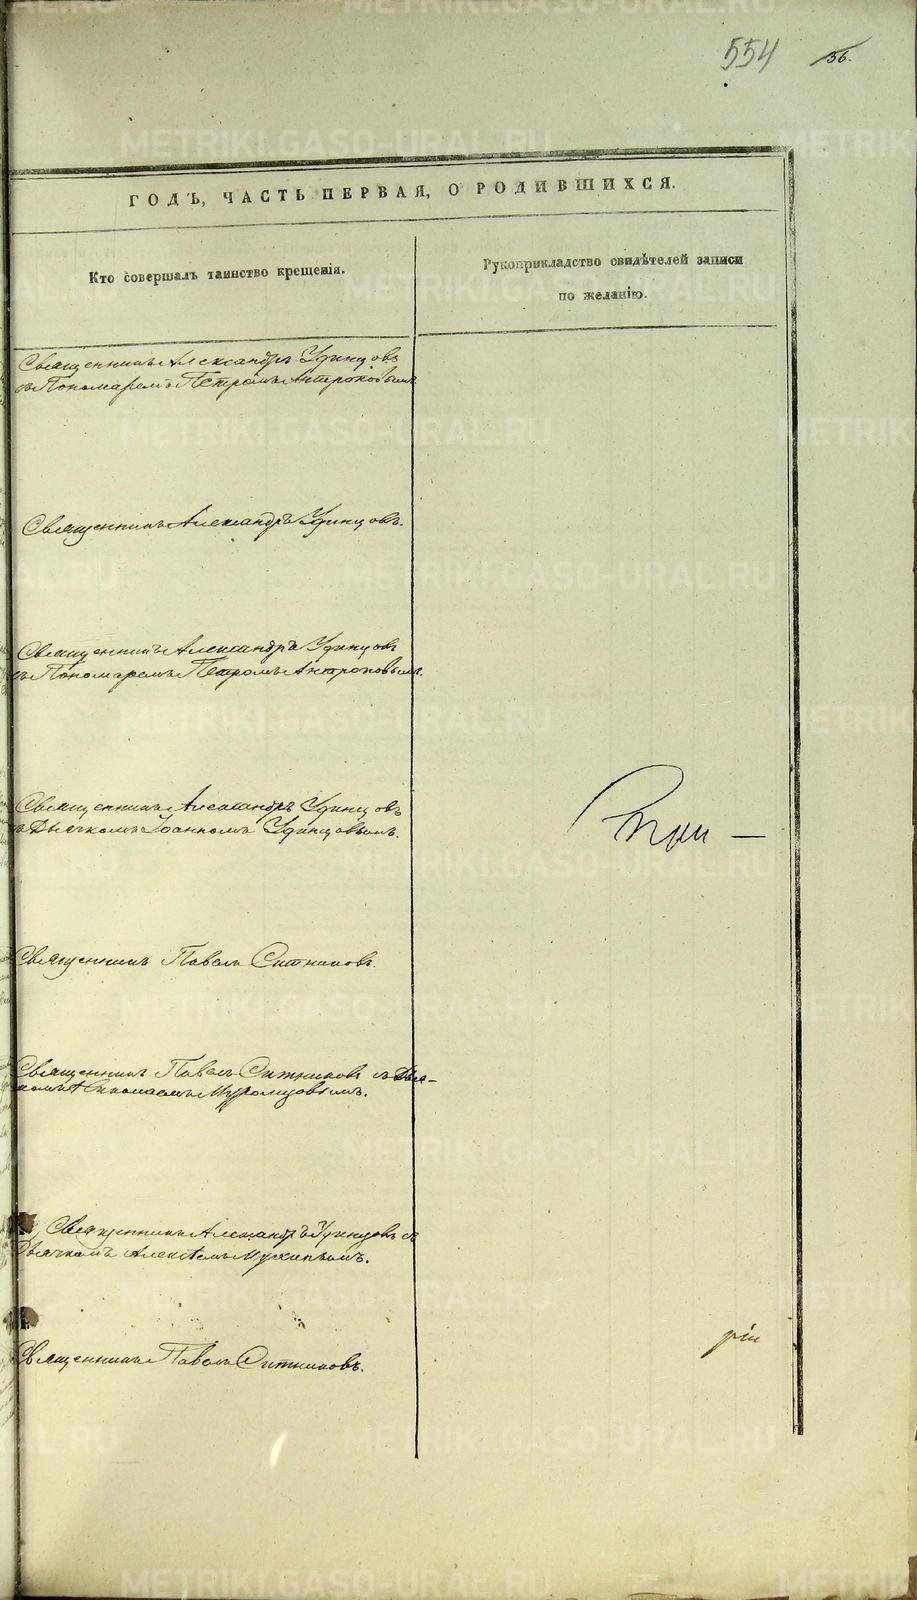 554 56.
ГОДЪ, ЧАСТЬ ПЕРВАЯ, О РОДИВШИХСЯ.
Кто совершалъ таинство крещенія.
Рукоприкладство свидѣтелей записи
по желанію.
Священникъ Александръ Удинцовъ
съ Пономаремъ Петромъ Антроповымъ
Священникъ Александръ Удинцовъ.
Священникъ Александръ Удинцовъ
съ Пономаремъ Петромъ Антроповымъ.
Священникъ Александръ Удинцовъ
съ Дьячкомъ Іоанномъ Удинцовымъ.
При —
Священникъ Павелъ Ситниковъ.
Священникъ Павелъ Ситниковъ съ Дья-
комъ Николаемъ Муромцовымъ.
Священникъ Александръ Удинцовъ съ
Дьячкомъ Алексѣемъ
Священникъ Павелъ Ситниковъ.
METRIKI.GASO-URAL.RU